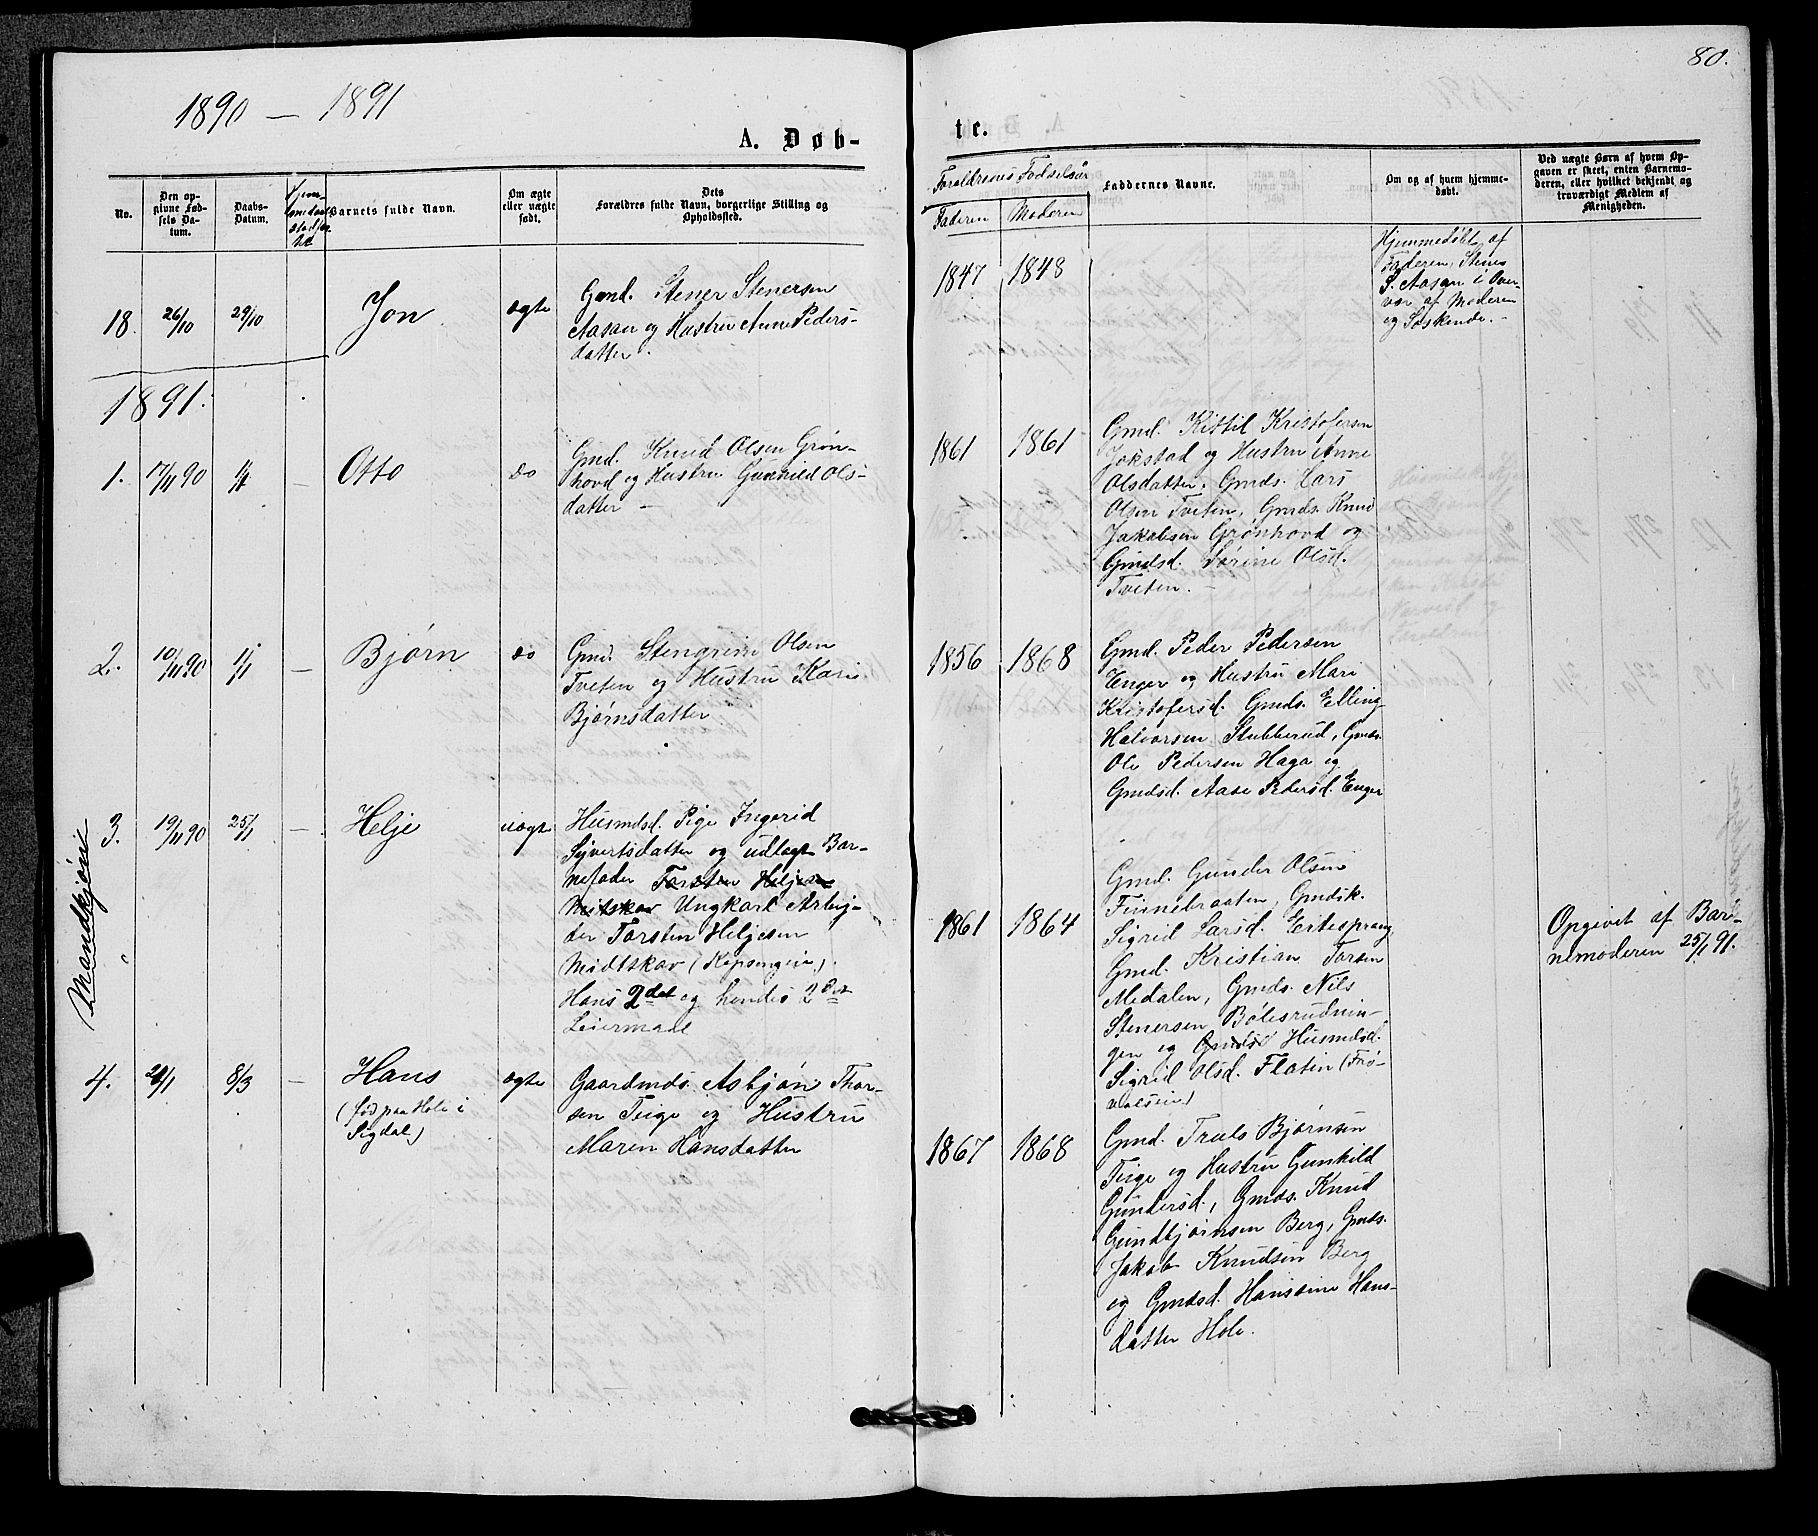 1890 — 1891
A. Døb-
No.
Den op-
givne Fød-
sels Da-
tum.
Daabs-
Datum.
Barnets fulde Navn.
Om ægte
eller uægte
født.
Dets
Forældres fulde Navn, borgerlige Stilling og
Opholdssted.
18. 26/10 29/10 Jon ægte
Gmd. Stener Stenersen
Aasan og Hustru Anne Peders-
datter.
1891.
1. 17/11 90 — Otto do
Gmd. Knud Olsen Grøn-
hovd og Hustru Gunhild Ols-
datter —
2. 10/11 90 1/1 — Bjørn do
Gmd. Stengrim Olsen
Tveten og Hustru Kari
Bjørnsdatter
Mandkjøn
3. 19/11 90 25/1 — Helje uægte
Husmdsd. Pige Ingerid
Syvertsdatter og udlagt Bar-
nefader Torsten Heljesen
Midtskov Ungkarl Arbej-
der Torsten Heljesen
Midtskov
Hans 2det og hendes 2det
Leiermaal
4. /1 8/3 — Hans ægte
(født paa Hole i
Sigdal)
Gaardmds. Asbjøn Thor-
sen Teige og Hustru
Maren Hansdatter
80.
te.
Forældrenes Fødselsår
Faderen Moderen
Faddernes Navne.
Om og af hvem hjemme-
døbt.
Ved uægte Børn af hvem Op-
gaven er skeet, enten Barnemo-
deren, eller hvilket bekjendt og
troværdigt Medlem af
Menigheden.
1847 1848
Hjemmedøbt af
Faderen, Stener
S. Aasan i Over-
vær af Moderen
og Søskende. -
1861 1861
Gmd. Kittil Kristofersen
Jokstad og Hustru Anne
Olsdatter, Gmds. Lars
Olsen Tveten, Gmds. Knud
Jakobsen Grønhovd og
Gmdsd. Sørine Olsd.
Tveten. -
1856 1868
Gmd. Peder Pedersen
Enger og Hustru Mari
Kristofersd. Gmds. Elling
Halvorsen Stubberud, Gmds.
Ole Pedersen Haga og
Gmdsd. Aase Pedersd. Enger
1861 1864
Gmd. Gunder Olsen
Finnebraaten, Gmdsk.
Sigrid Larsd. Ertesprang
Gmd. Kristian Torsen
Medalen, Gmds. Nils
Stenersen Bølesrudnin-
gen og Gmdsd Husmdsd.
Sigrid Olsd. Flatin
Opgivet af Bar-
nemoderen 25/1 91.
1867 1868
Gmd. Truls Bjørnsen
Teige og Hustru Gunhild
Gundersd, Gmds. Knud
Gundbjørnsen Berg, Gmds.
Jakob Knudsen Berg
og Gmdsd. Hansine Hans-
datter Hole.